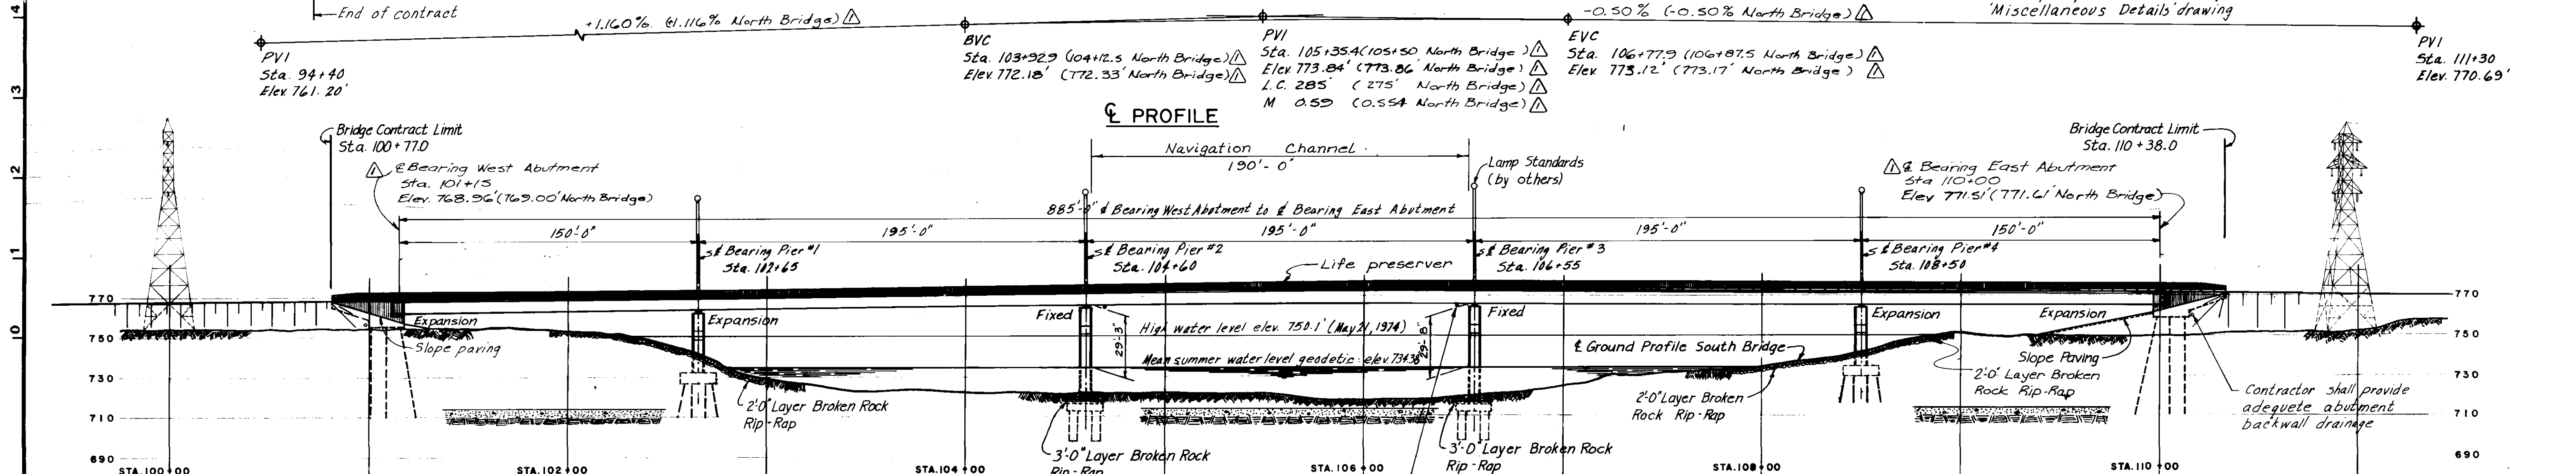 14
13
12
11
10
End of contract
+1.160% (+1.116% North Bridge) 1
-0.50% (-0.50% North Bridge) 1
'Miscellaneous Details' drawing
PVI
Sta. 94+40
Elev. 761.20'
BVC
Sta. 103+92.9 (104+12.5 North Bridge) 1
Elev. 772.18' (772.33' North Bridge) 1
PVI
Sta. 105+35.4 (105+50 North Bridge) 1
Elev. 773.84' (773.86' North Bridge) 1
L.C. 285' (275' North Bridge) 1
M 0.59 (0.554 North Bridge) 1
EVC
Sta. 106+77.9 (106+87.5 North Bridge) 1
Elev. 773.12' (773.17' North Bridge) 1
PVI
Sta. 111+30
Elev. 770.69'
℄ PROFILE
Bridge Contract Limit
Sta. 100+77.0
1 ℄ Bearing West Abutment
Sta. 101+15
Elev. 768.96' (769.00' North Bridge)
Navigation Channel
190'-0"
Lamp Standards
(by others)
Bridge Contract Limit
Sta. 110+38.0
1 ℄ Bearing East Abutment
Sta 110+00
Elev 771.51' (771.61' North Bridge)
885'-0" ℄ Bearing West Abutment to ℄ Bearing East Abutment
150'-0"
195'-0"
195'-0"
195'-0"
150'-0"
℄ Bearing Pier #1
Sta. 102+65
℄ Bearing Pier #2
Sta. 104+60
℄ Bearing Pier #3
Sta. 106+55
℄ Bearing Pier #4
Sta. 108+50
Life preserver
770
770
Expansion
Expansion
Fixed
Fixed
Expansion
Expansion
High water level elev. 750.1' (May 21, 1974)
29'-3"
29'-8"
750
750
Slope paving
Mean summer water level geodetic elev.
℄ Ground Profile South Bridge
Slope Paving
730
730
2'-0" Layer Broken Rock
Rip-Rap
2'-0" Layer Broken
Rock Rip-Rap
2'-0" Layer Broken
Rock Rip-Rap
Contractor shall provide
adequete abutment
backwall drainage
710
710
3'-0" Layer Broken Rock
Rip-Rap
3'-0" Layer Broken Rock
Rip-Rap
690
690
STA. 100+00
STA. 102+00
STA. 104+00
STA. 106+00
STA. 108+00
STA. 110+00